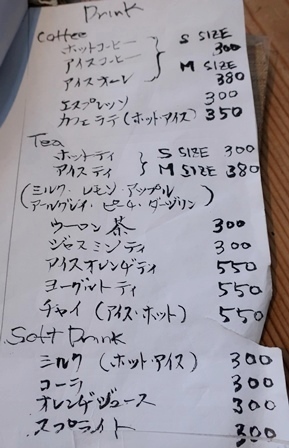 Drink
Coffee
ホットコーヒー S SIZE
アイスコーヒー 300
アイスオーレ M SIZE 380
エスプレッソ 300
カフェラテ(ホット・アイス) 350
Tea
ホットティ S SIZE 300
アイスティ M SIZE 380
(ミルク・レモン・アップル
アールグレイ・ピーチ・ダージリン)
ウーロン茶 300
ジャスミンティ 300
アイスオレンジティ 550
ヨーグルトティ 550
チャイ(アイス・ホット) 550
Soft Drink
ミルク(ホット・アイス) 300
コーラ 300
オレンジジュース 300
スプライト 300